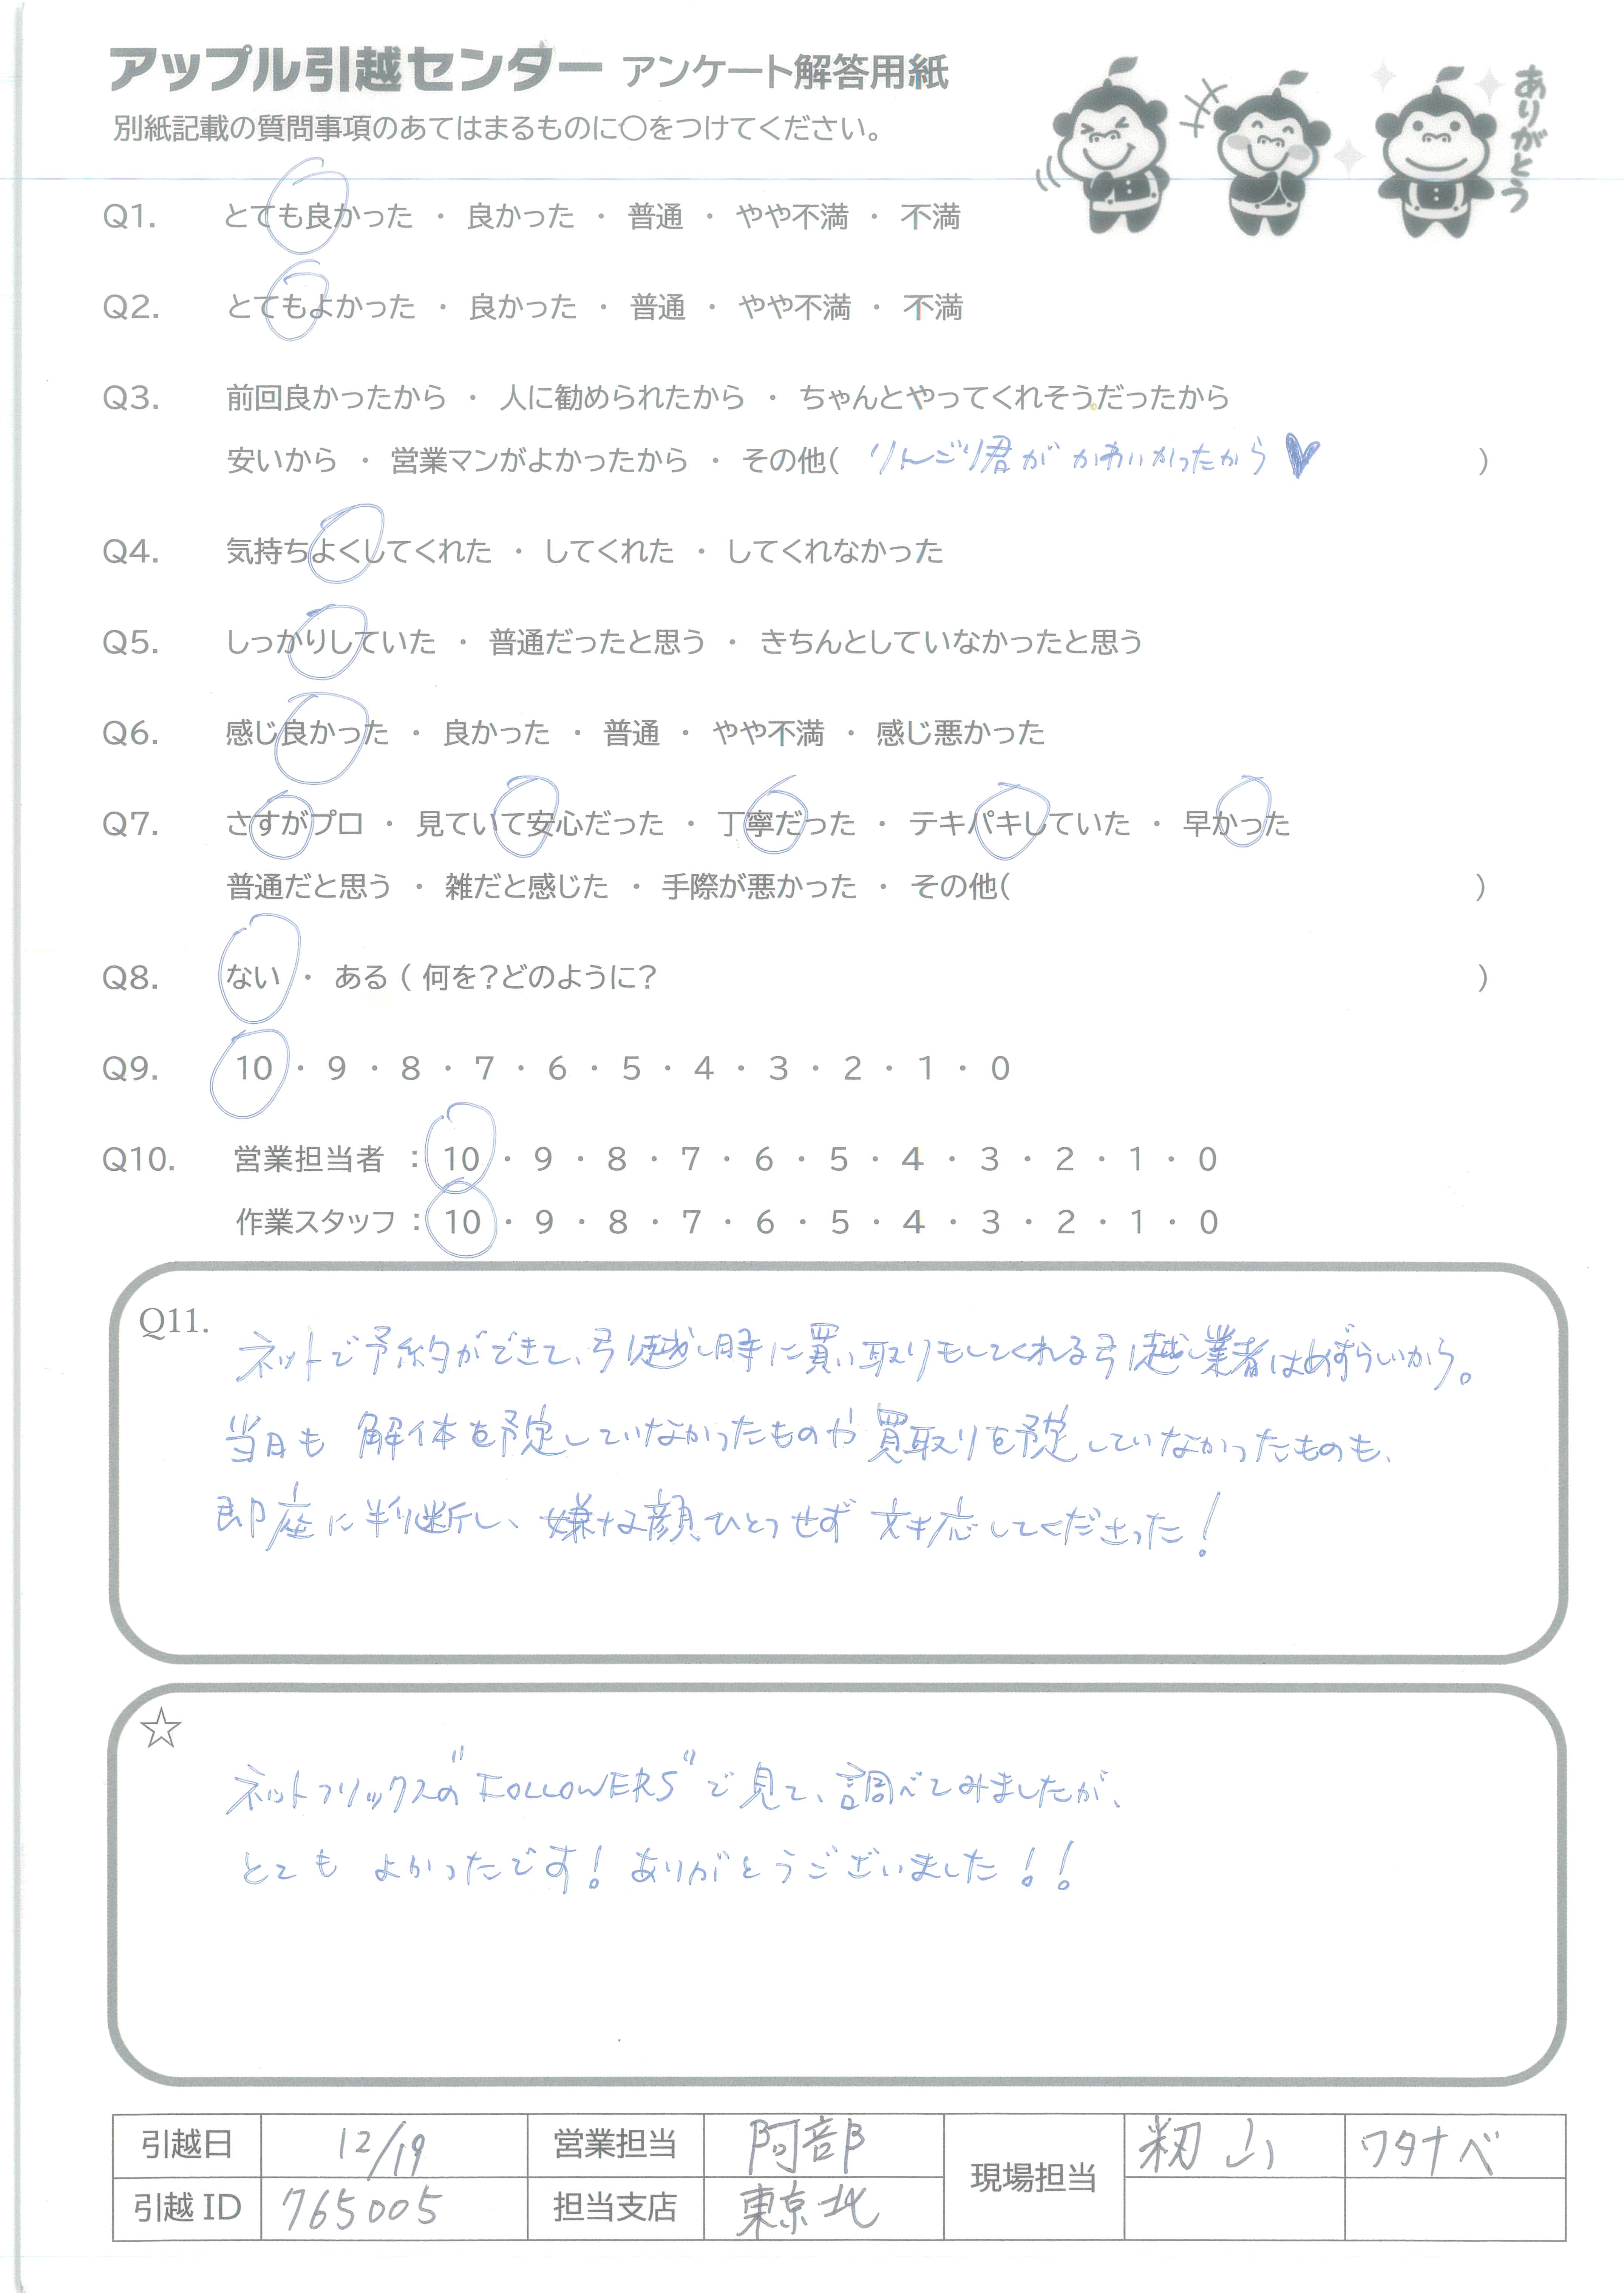 アップル引越センター アンケート解答用紙
ありがとう
別紙記載の質問事項のあてはまるものに〇をつけてください。
Q1. とても良かった ・ 良かった ・ 普通 ・ やや不満 ・ 不満
Q2. とてもよかった ・ 良かった ・ 普通 ・ やや不満 ・ 不満
Q3. 前回良かったから ・ 人に勧められたから ・ ちゃんとやってくれそうだったから
安いから ・ 営業マンがよかったから ・ その他( りんごり君が かわいかったから♥ )
Q4. 気持ちよくしてくれた ・ してくれた ・ してくれなかった
Q5. しっかりしていた ・ 普通だったと思う ・ きちんとしていなかったと思う
Q6. 感じ良かった ・ 良かった ・ 普通 ・ やや不満 ・ 感じ悪かった
Q7. さすがプロ ・ 見ていて安心だった ・ 丁寧だった ・ テキパキしていた ・ 早かった
普通だと思う ・ 雑だと感じた ・ 手際が悪かった ・ その他( )
Q8. ない ・ ある ( 何を?どのように? )
Q9. 10 ・ 9 ・ 8 ・ 7 ・ 6 ・ 5 ・ 4 ・ 3 ・ 2 ・ 1 ・ 0
Q10. 営業担当者 : 10 ・ 9 ・ 8 ・ 7 ・ 6 ・ 5 ・ 4 ・ 3 ・ 2 ・ 1 ・ 0
作業スタッフ : 10 ・ 9 ・ 8 ・ 7 ・ 6 ・ 5 ・ 4 ・ 3 ・ 2 ・ 1 ・ 0
Q11. ネットで予約ができて、引越し時に買い取りもしてくれる引越し業者はめずらしいから。
当日も 解体を予定していなかったものや買取りを予定していなかったものも、
即座に判断し、嫌な顔ひとつせず 対応してくださった!
☆
ネットフリックスの"FOLLOWERS"で見て、調べてみましたが、
とても よかったです! ありがとうございました!!
引越日 12/19 営業担当 阿部 現場担当 籾山 ワタナベ
引越 ID 765005 担当支店 東京北